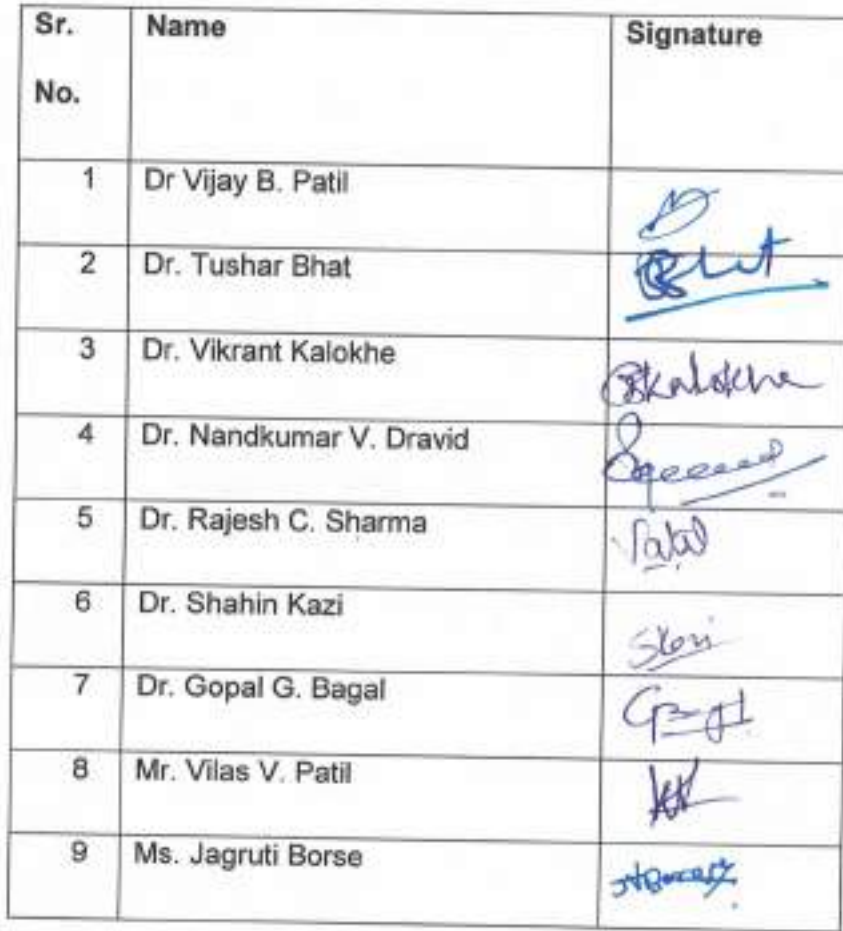 Sr. No. Name Signature
1 Dr Vijay B. Patil
2 Dr. Tushar Bhat
3 Dr. Vikrant Kalokhe Kalokhe
4 Dr. Nandkumar V. Dravid
5 Dr. Rajesh C. Sharma
6 Dr. Shahin Kazi
7 Dr. Gopal G. Bagal
8 Mr. Vilas V. Patil
9 Ms. Jagruti Borse